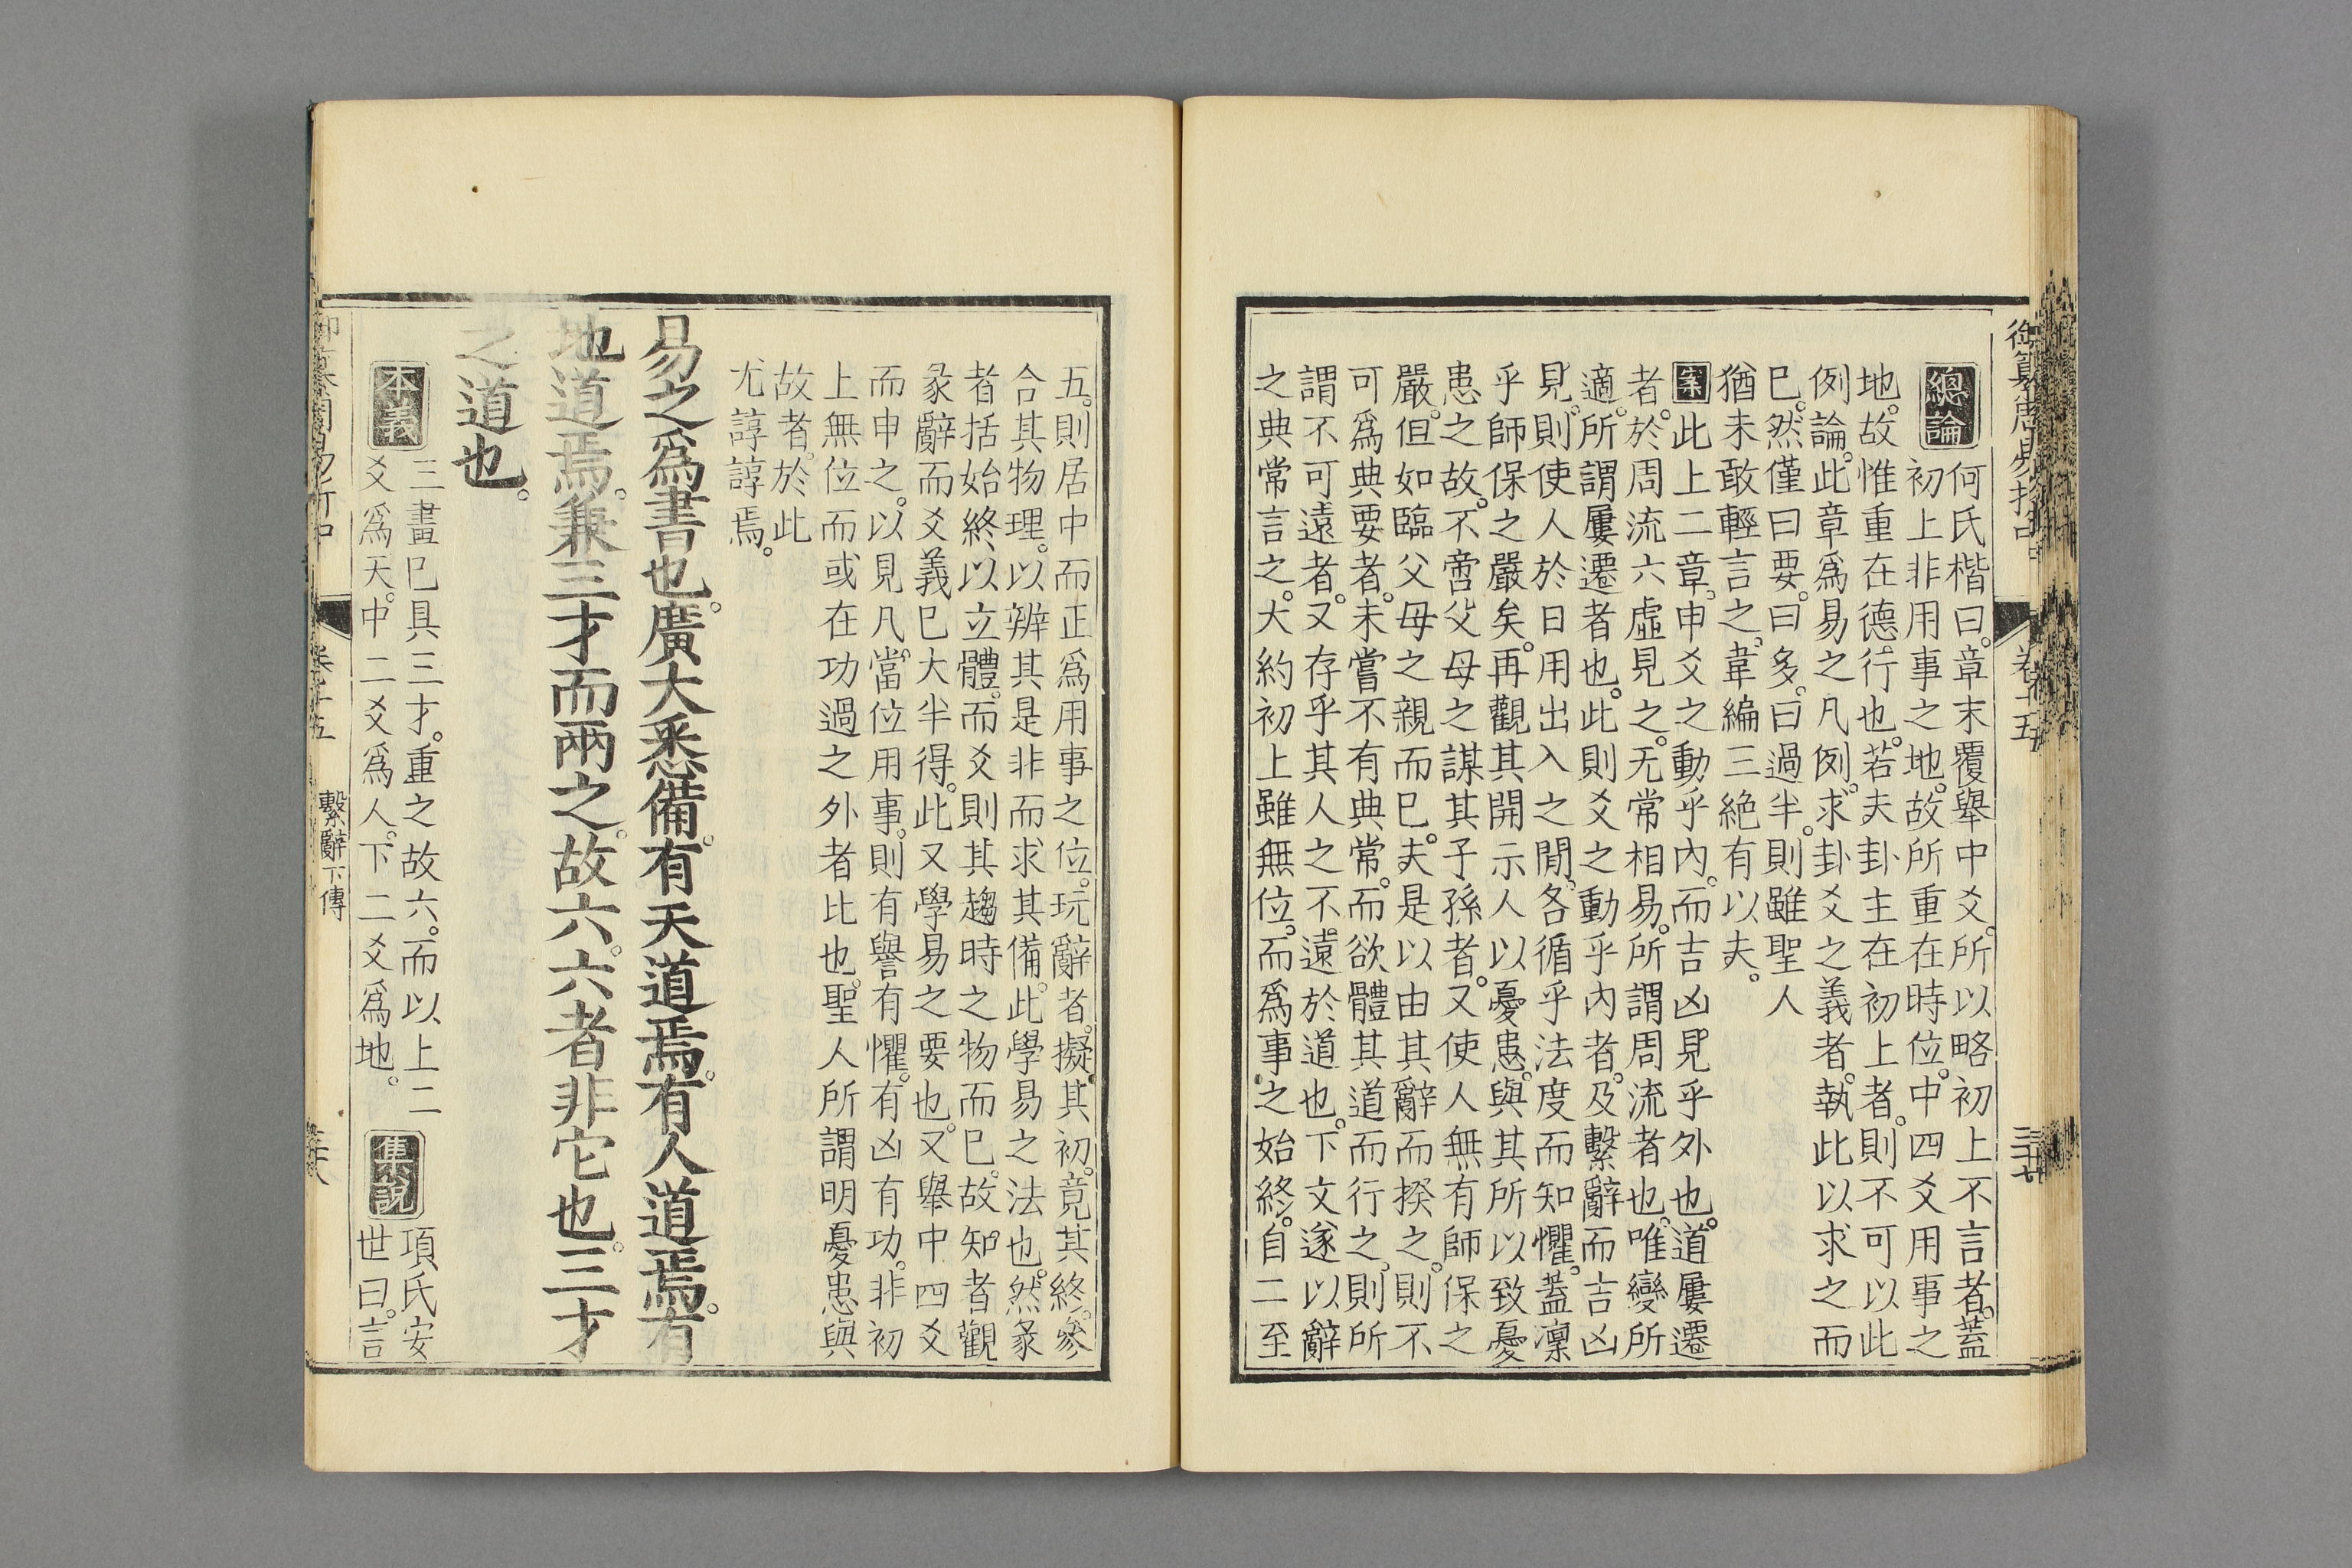 御纂周易折中
卷十五
三十七
總論
何氏楷曰。章末覆舉中爻。所以略初上不言者。蓋
初上非用事之地。故所重在時位。中四爻用事之
地。故惟重在德行也。若夫卦主在初上者。則不可以此
例論。此章爲易之凡例。求卦爻之義者。執此以求之而
巳。然僅曰要。曰多。曰過半。則雖聖人
猶未敢輕言之。韋編三絕有以夫。
案此上二章。申爻之動乎內。而吉凶見乎外也。道屢遷
者。於周流六虛見之。无常相易。所謂周流者也。唯變所
適。所謂屢遷者也。此則爻之動乎內者。及繫辭而吉凶
見。則使人於日用出入之閒。各循乎法度而知懼。蓋凜
乎師保之嚴矣。再觀其開示人以憂患。與其所以致憂
患之故。不啻父母之謀其子孫者。又使人無有師保之
嚴。但如臨父母之親而巳。夫是以由其辭而揆之。則不
可爲典要者。未嘗不有典常。而欲體其道而行之。則所
謂不可遠者。又存乎其人之不遠於道也。下文遂以辭
之典常言之。大約初上雖無位。而爲事之始終。自二至
五。則居中而正爲用事之位。玩辭者。擬其初。竟其終。參
合其物理。以辨其是非而求其備。此學易之法也。然彖
者括始終以立體。而爻則其趨時之物而巳。故知者觀
彖辭而爻義巳大半得。此又學易之要也。又舉中四爻
而申之。以見凡當位用事。則有譽有懼。有凶有功。非初
上無位而或在功過之外者比也。聖人所謂明憂患與
故者。於此
尤諄諄焉。
易之爲書也。廣大悉備。有天道焉。有人道焉。有
地道焉。兼三才而兩之。故六。六者非它也。三才
之道也。
本義
三畫巳具三才。重之故六。而以上二
爻爲天。中二爻爲人。下二爻爲地。
集說
項氏安
世曰。言
御纂周易折中
卷十五
繫辭下傳
三十八